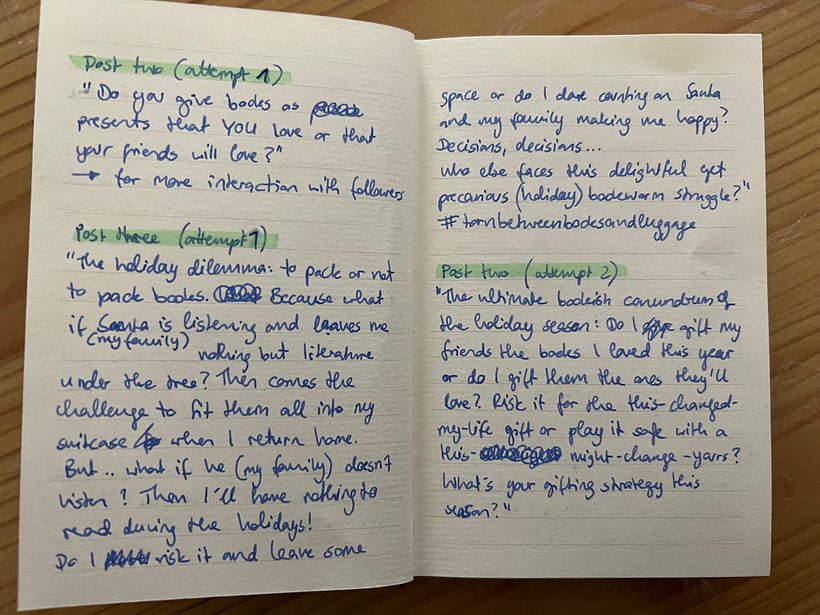 Post two (attempt 1)
"Do you give books as
presents that YOU love or that
your friends will love?"
→ for more interaction with followers
Post three (attempt 1)
"The holiday dilemma: to pack or not
to pack books. Because what
if Santa is listening and leaves me
(my family)
nothing but literature
under the tree? Then comes the
challenge to fit them all into my
suitcase when I return home.
But.. what if he (my family) doesn't
listen? Then I'll have nothing to
read during the holidays!
Do I risk it and leave some
space or do I dare counting on Santa
and my family making me happy?
Decisions, decisions...
Who else faces this delightful yet
precarious (holiday) bookworm struggle?"
#tornbetweenbooksandluggage
Post two (attempt 2)
"The ultimate bookish conundrum of
the holiday season: Do I gift my
friends the books I loved this year
or do I gift them the ones they'll
love? Risk it for the this-changed-
my-life gift or play it safe with a
this-might-change-yours?
What's your gifting strategy this
season?"